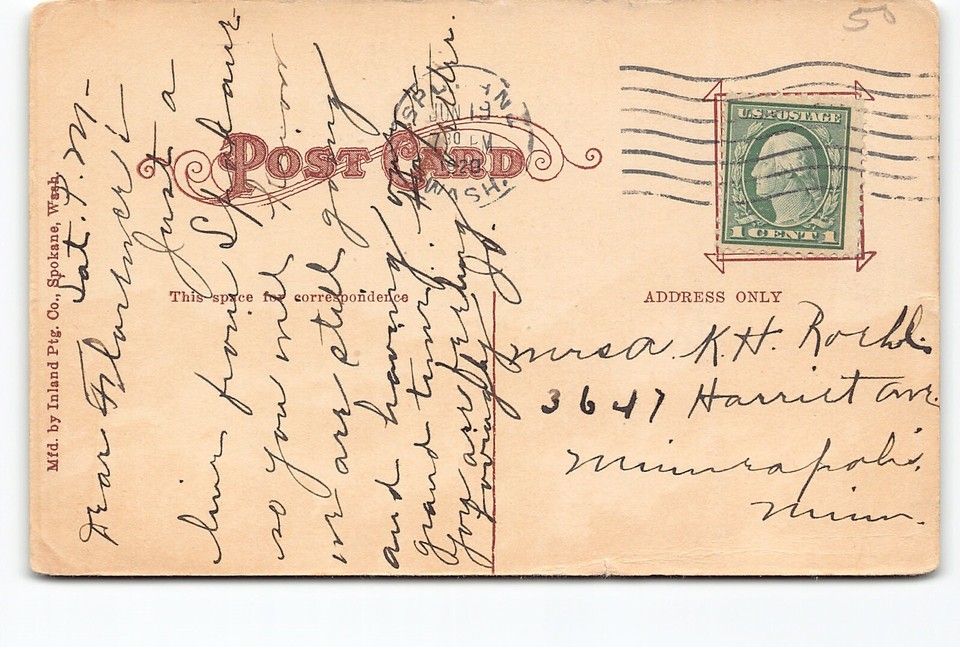 50
POST CARD
SPOKANE
JUN 19
730 PM
1920
WASH.
U.S. POSTAGE
1 CENT 1
Mfd. by Inland Ptg. Co., Spokane, Wash.
This space for correspondence
ADDRESS ONLY
Sat. P.M-
Dear
Just a
line from Spokane
so you will
we are still going
and having
grand time.
you are feeling
Lovingly
K.H. Roehl
3647 Harriet Ave.
Minneapolis,
Minn.